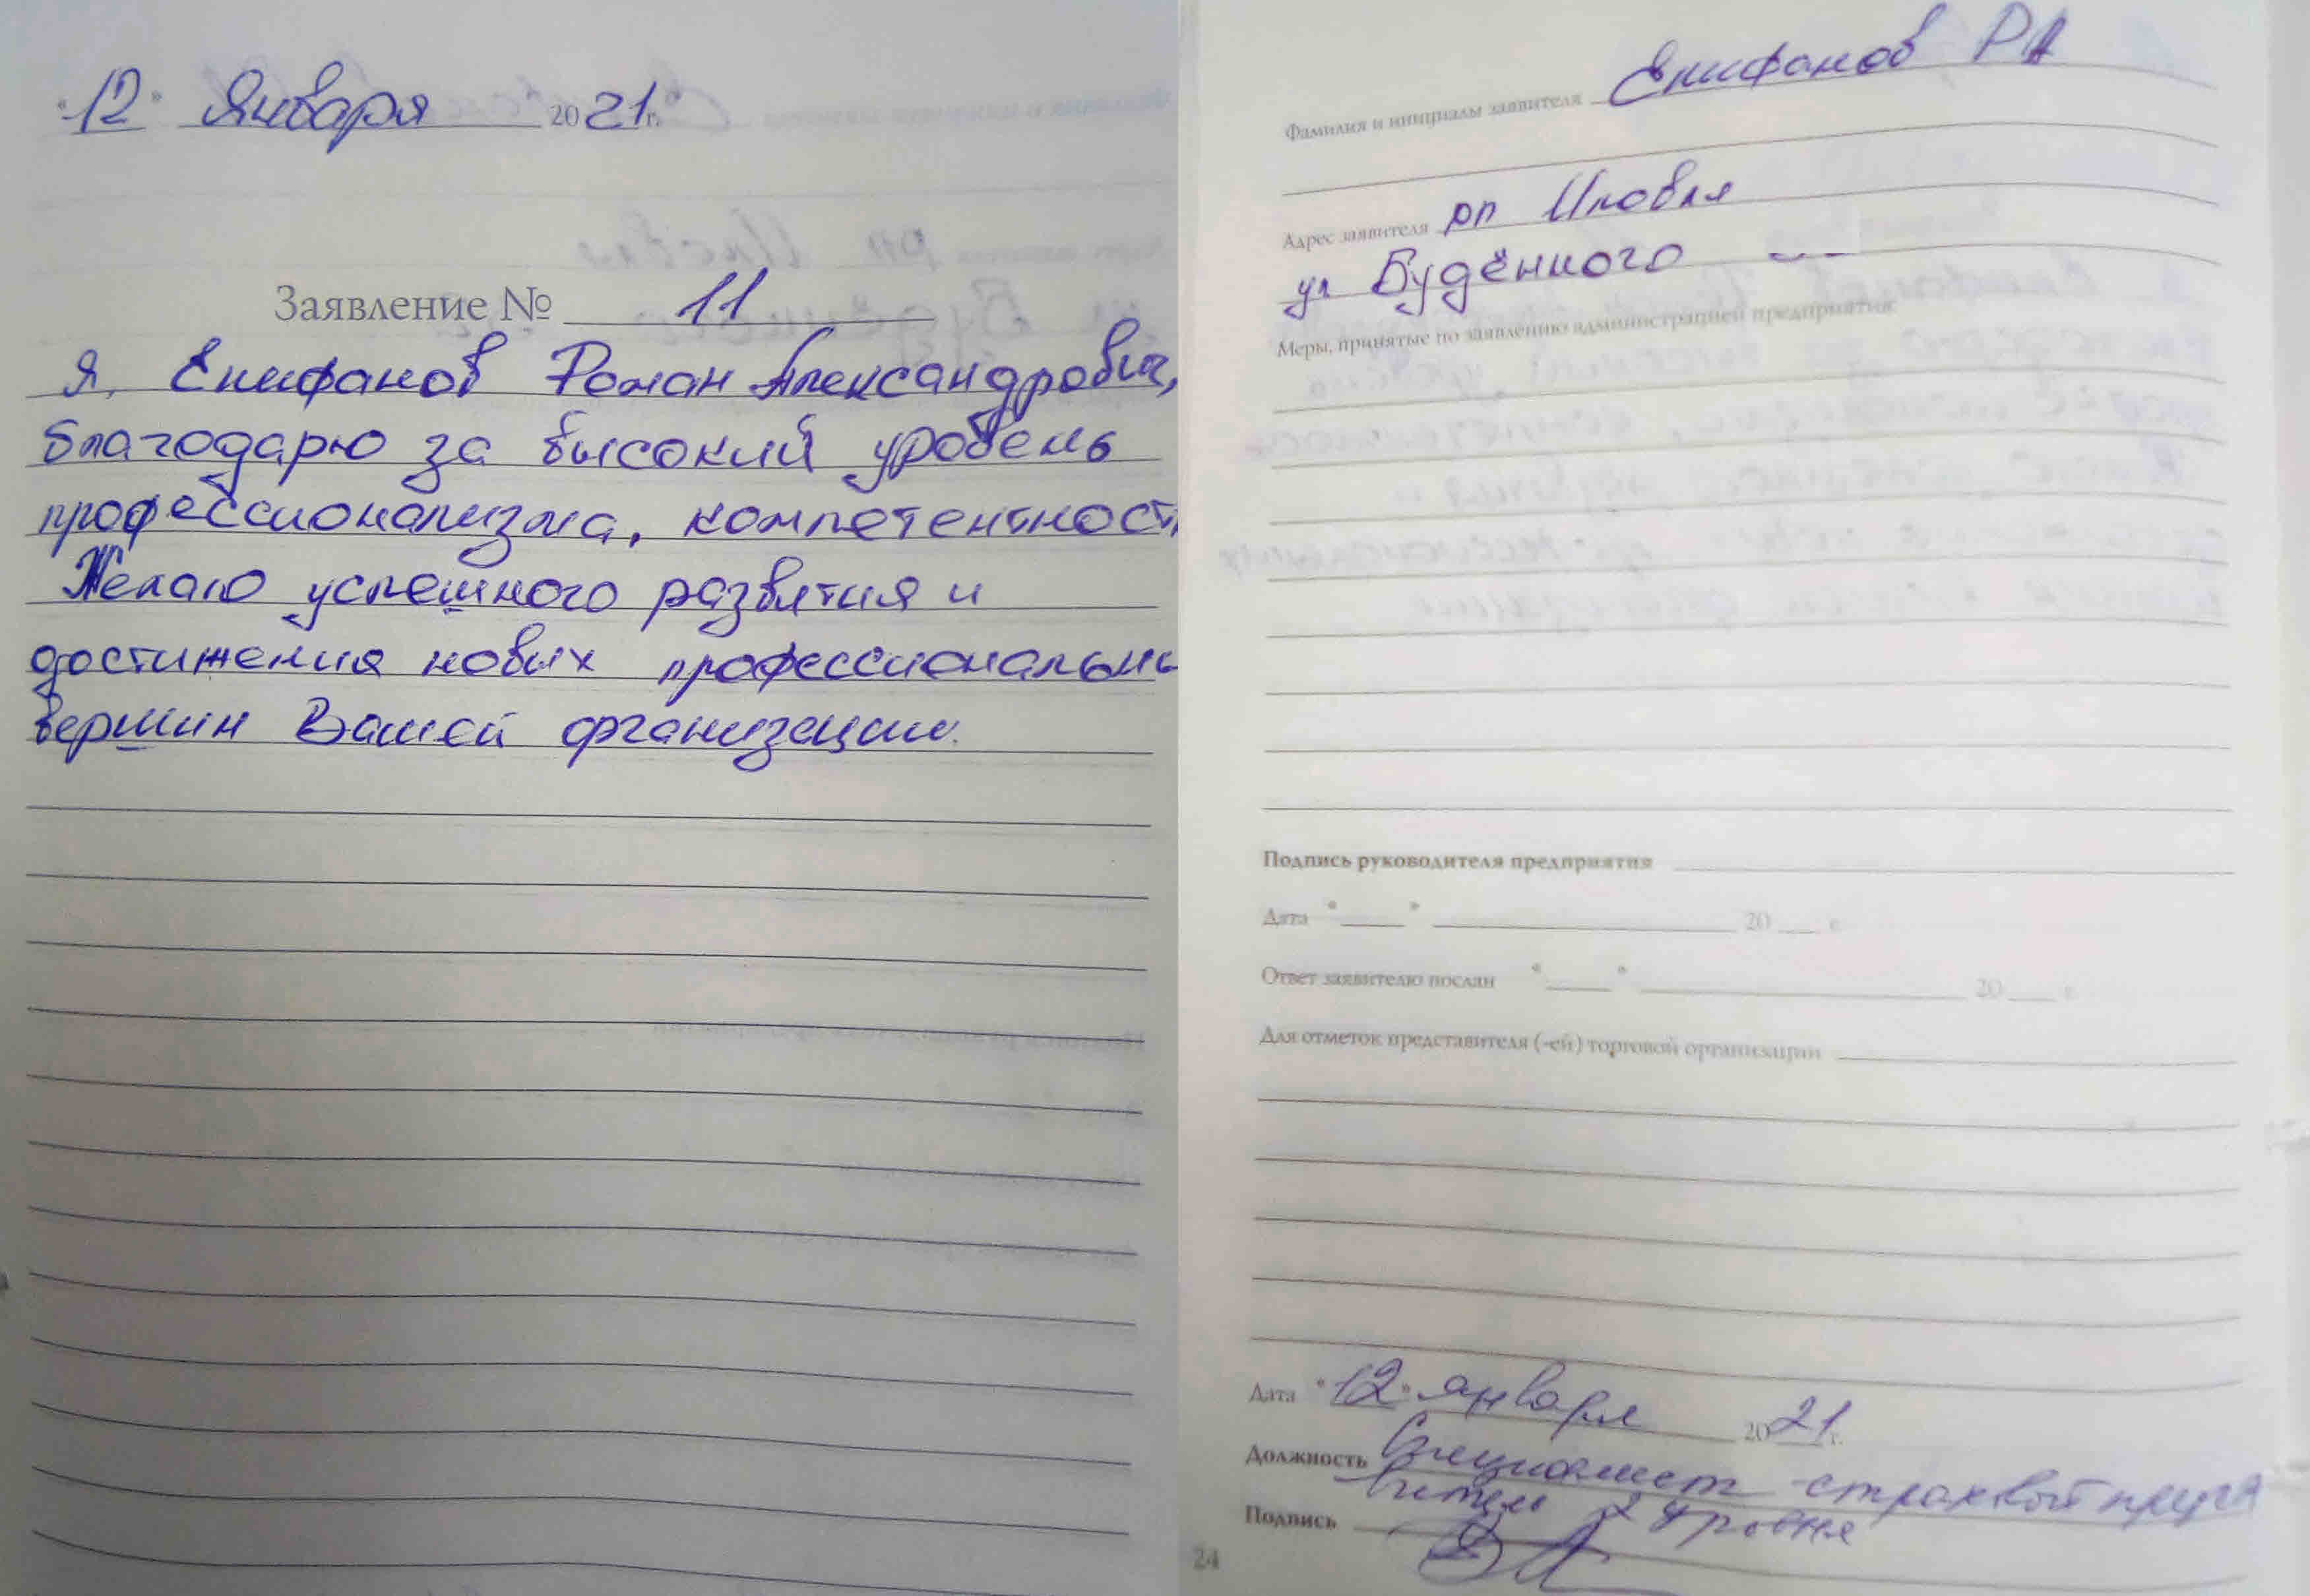 "12" Января 2021г.
Заявление № 11
Я, Епифанов Роман Александрович,
благодарю за высокий уровень
профессионализма, компетентност
Желаю успешного развития и
достижения новых профессиональны
вершин Вашей организации.
Фамилия и инициалы заявителя Епифанов РА
Адрес заявителя рп Иловля
ул Будённого
Меры, принятые по заявлению администрацией предприятия:
Подпись руководителя предприятия
Дата "___" 20___ г.
Ответ заявителю послан "___" 20___ г.
Для отметок представителя (-ей) торговой организации
Дата "12" января 2021г.
Должность Специалист страховой
2 уровня
Подпись
24